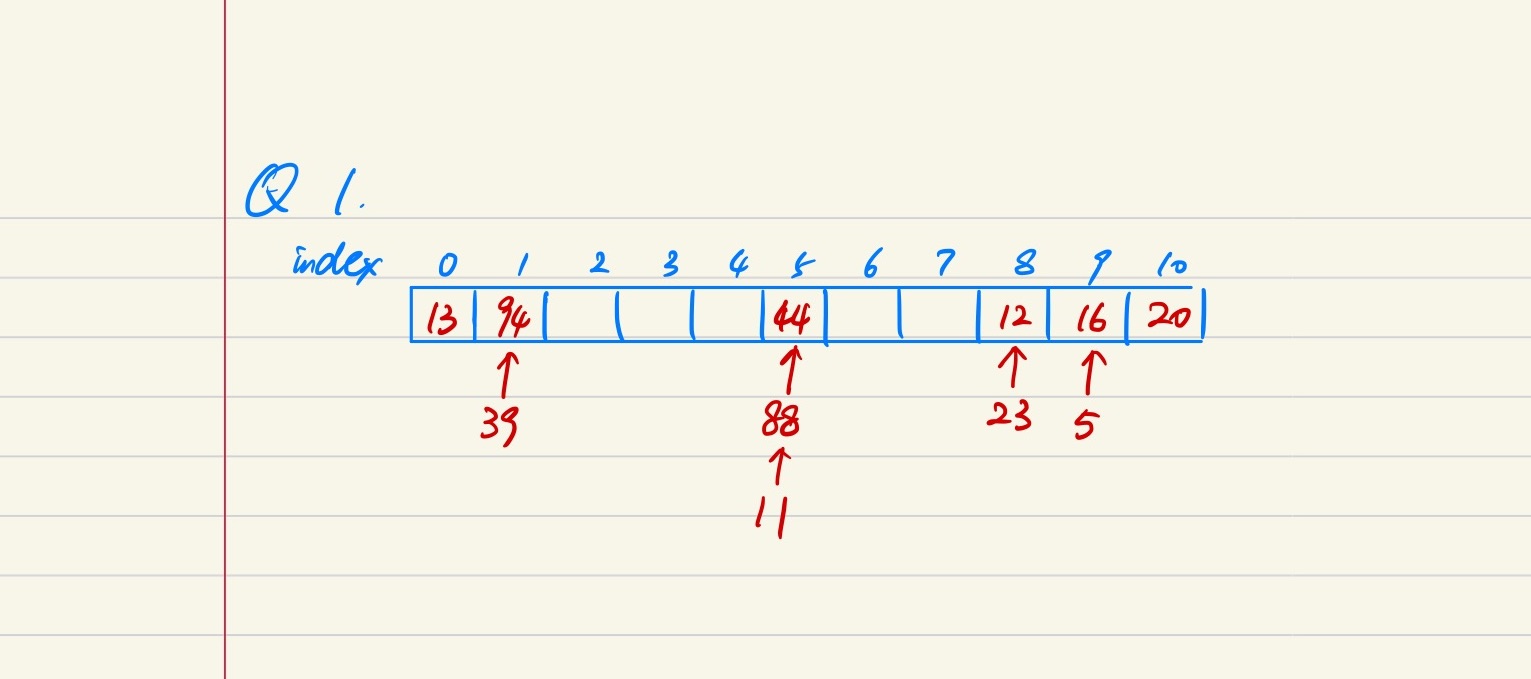 Q 1.
index 0 1 2 3 4 5 6 7 8 9 10
13 94 44 12 16 20
39 88 23 5
11